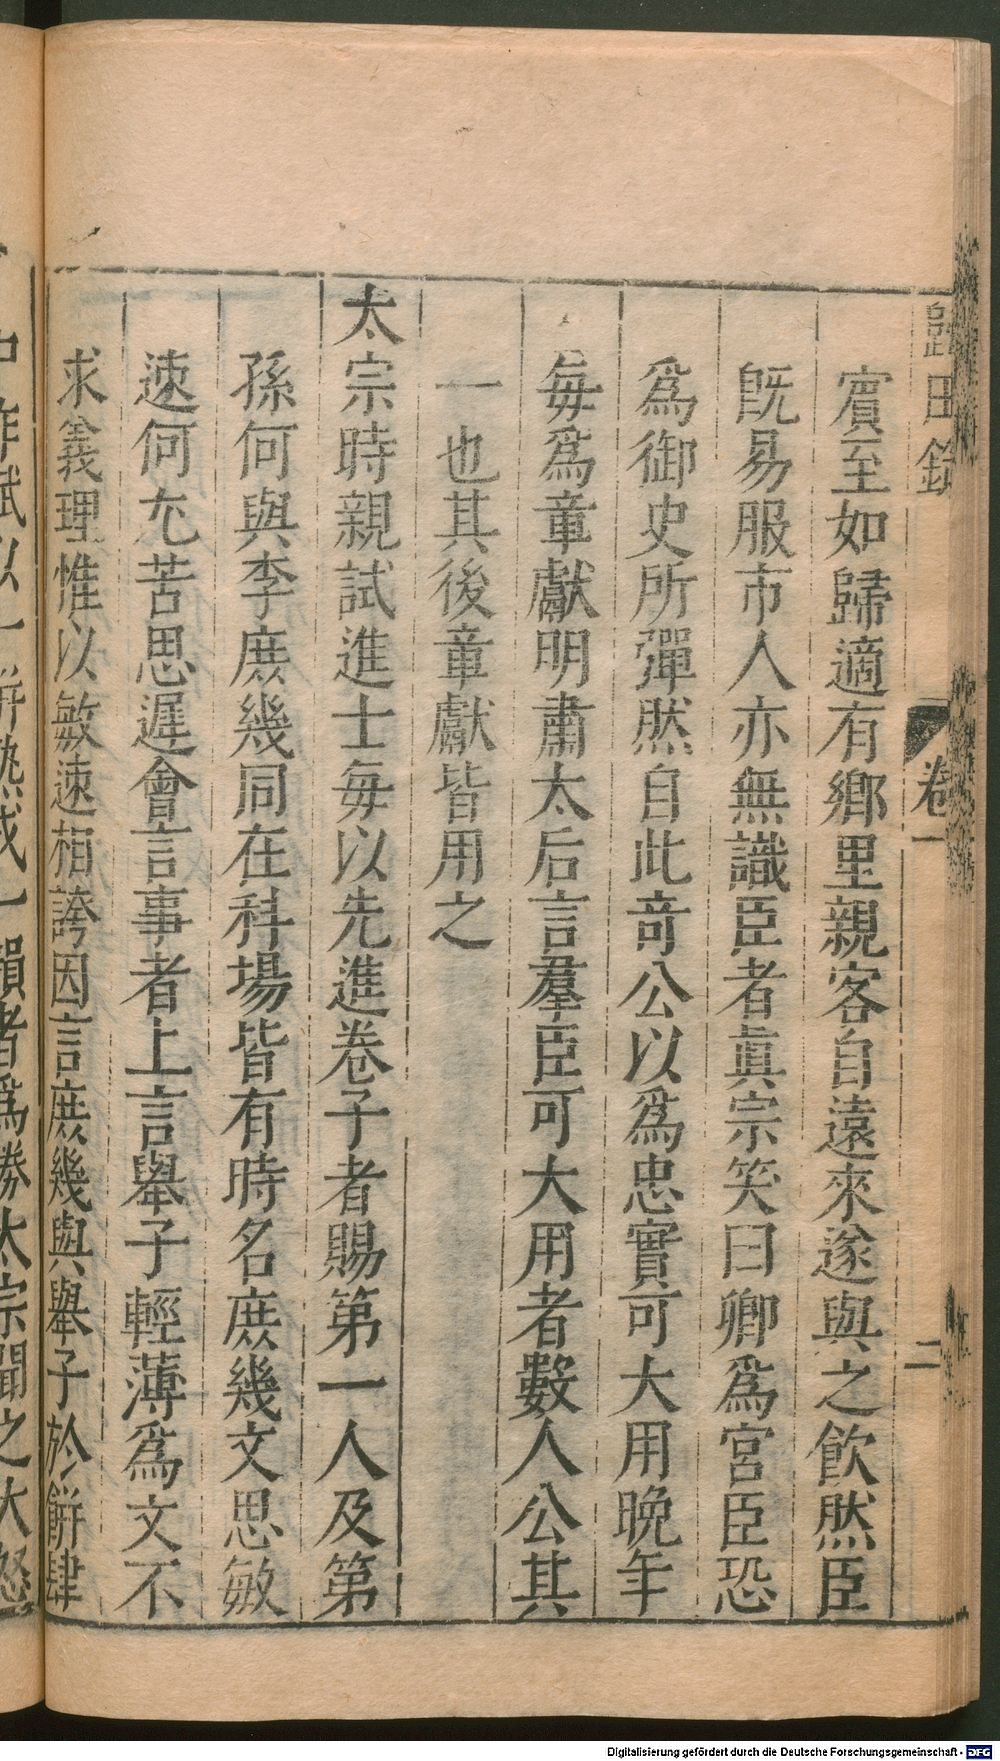 歸田錄
卷一
二
賔至如歸適有鄉里親客自遠來遂與之飲然臣
旣易服市人亦無識臣者眞宗笑曰卿爲宮臣恐
爲御史所彈然自此奇公以爲忠實可大用晚年
每爲章獻明肅太后言羣臣可大用者數人公其
一也其後章獻皆用之
太宗時親試進士每以先進卷子者賜第一人及第
孫何與李庶幾同在科場皆有時名庶幾文思敏
速何尤苦思遲會言事者上言舉子輕薄爲文不
求義理惟以敏速相誇因言庶幾與舉子於餅肆
中作賦以一餅熟成一韻者爲勝太宗聞之大怒
Digitalisierung gefördert durch die Deutsche Forschungsgemeinschaft - DFG